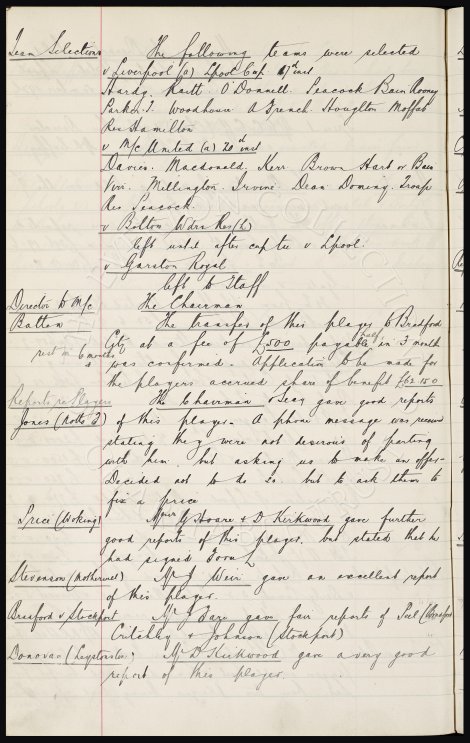 Team Selections The following teams were selected
v Liverpool (a) Lpool Cup. 17th inst
Hardy. Raitt. O'Donnell. Peacock Bain Rooney
Parker J. Woodhouse. A French. Houghton Moffat
Res Hamilton
v M/c United (a) 20th inst
Davies. Macdonald. Kerr. Brown Hart or Bain
Virr. Millington. Irvine. Dean Dominy. Troup
Res Peacock.
v Bolton Wdrs Res (h)
left until after cup tie v Lpool.
v Garston Royal
left to Staff
Director to M/c The Chairman
Batten The transfer of this player to Bradford
City at a fee of £500 payable half in 3 month
rest in 6 months was confirmed. Application to be made for
the players accrued share of benefit £62.10.0
Reports re Players The Chairman & Secy gave good reports
Jones (Notts F) of this player. A phone message was received
stating they were not desirous of parting
with him, but asking us to make an offer.
Decided not to do so but to ask them to
fix a price
Price (Woking) Messrs Hoare & D. Kirkwood gave further
good reports of this player, but stated that he
had signed form
Stevenson (Motherwell) Mr J Weir gave an excellent report
of this player.
Bradford v Stockport Mr J Fare gave fair reports of Peel (Bradford)
Critchley & Johnson (Stockport)
Donovan (Leytonstone) Mr D Kirkwood gave a very good
report of this player.